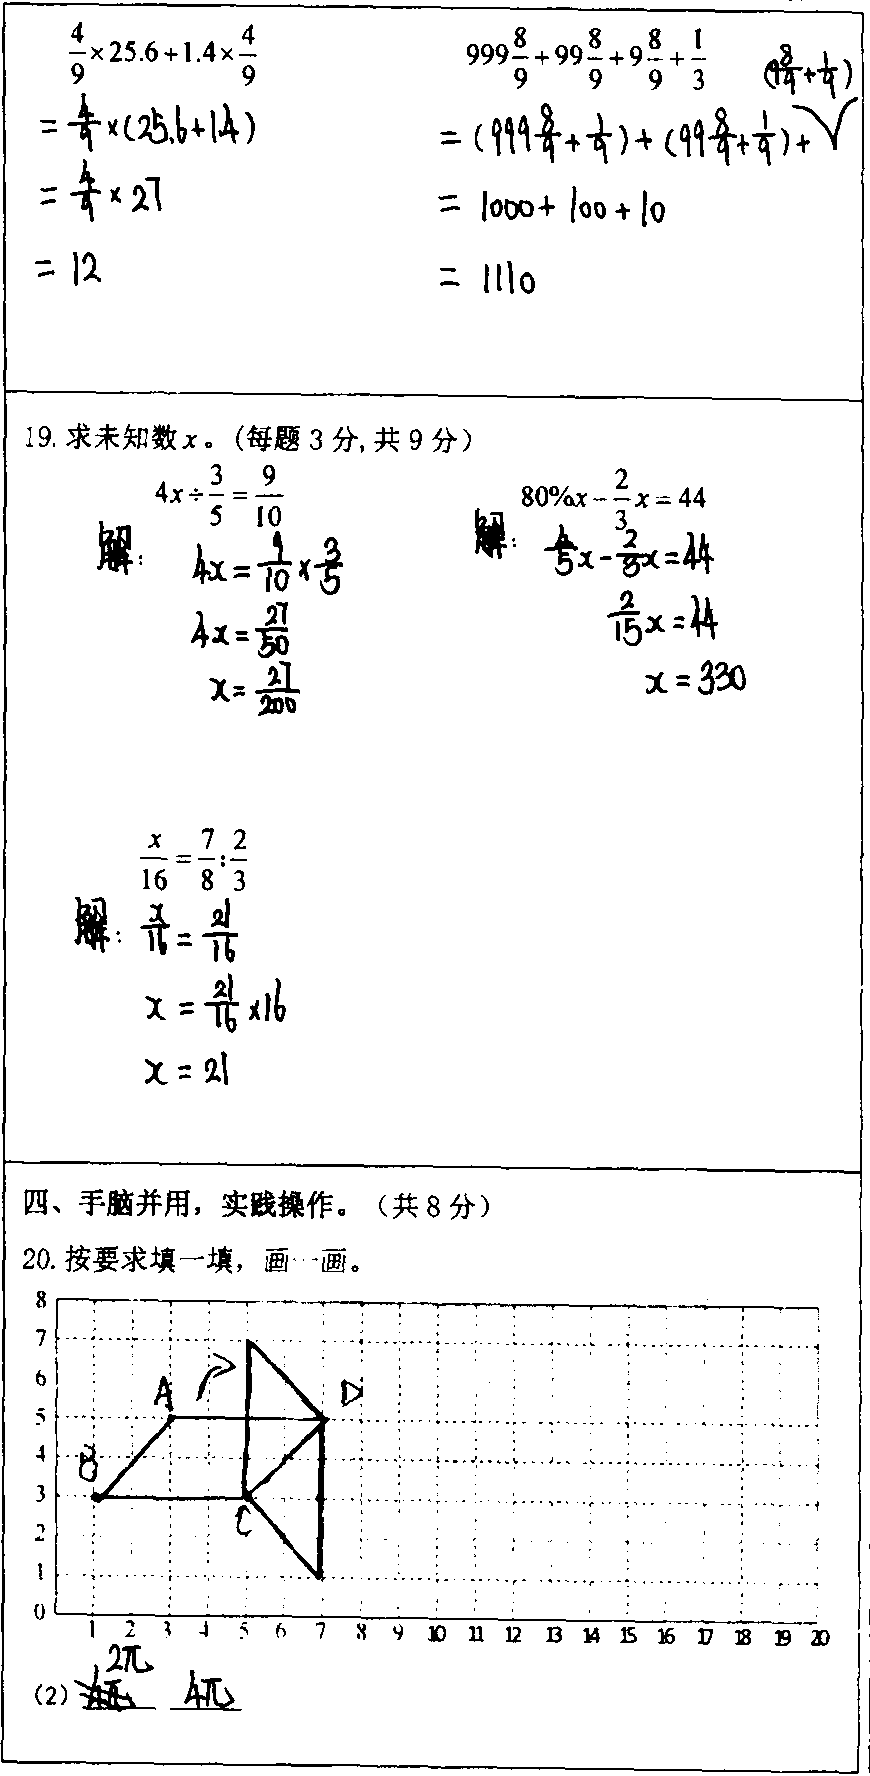 4/9×25.6+1.4×4/9
=4/9×(25.6+1.4)
=4/9×27
=12
999 8/9+99 8/9+9 8/9+1/3
(9 8/9+1/9)
=(999 8/9+1/9)+(99 8/9+1/9)+
=1000+100+10
=1110
19. 求未知数x。(每题3分,共9分)
4x÷3/5=9/10
解:
4x=9/10×3/5
4x=27/50
x=27/200
80%x-2/3x=44
解:
4/5x-2/3x=44
2/15x=44
x=330
x/16=7/8:2/3
解: x/16=21/16
x=21/16×16
x=21
四、手脑并用，实践操作。（共8分）
20. 按要求填一填，画一画。
8
7
6
5
4
3
2
1
0
A
B
C
D
1 2 3 4 5 6 7 8 9 10 11 12 13 14 15 16 17 18 19 20
2π
(2) 4π 4π